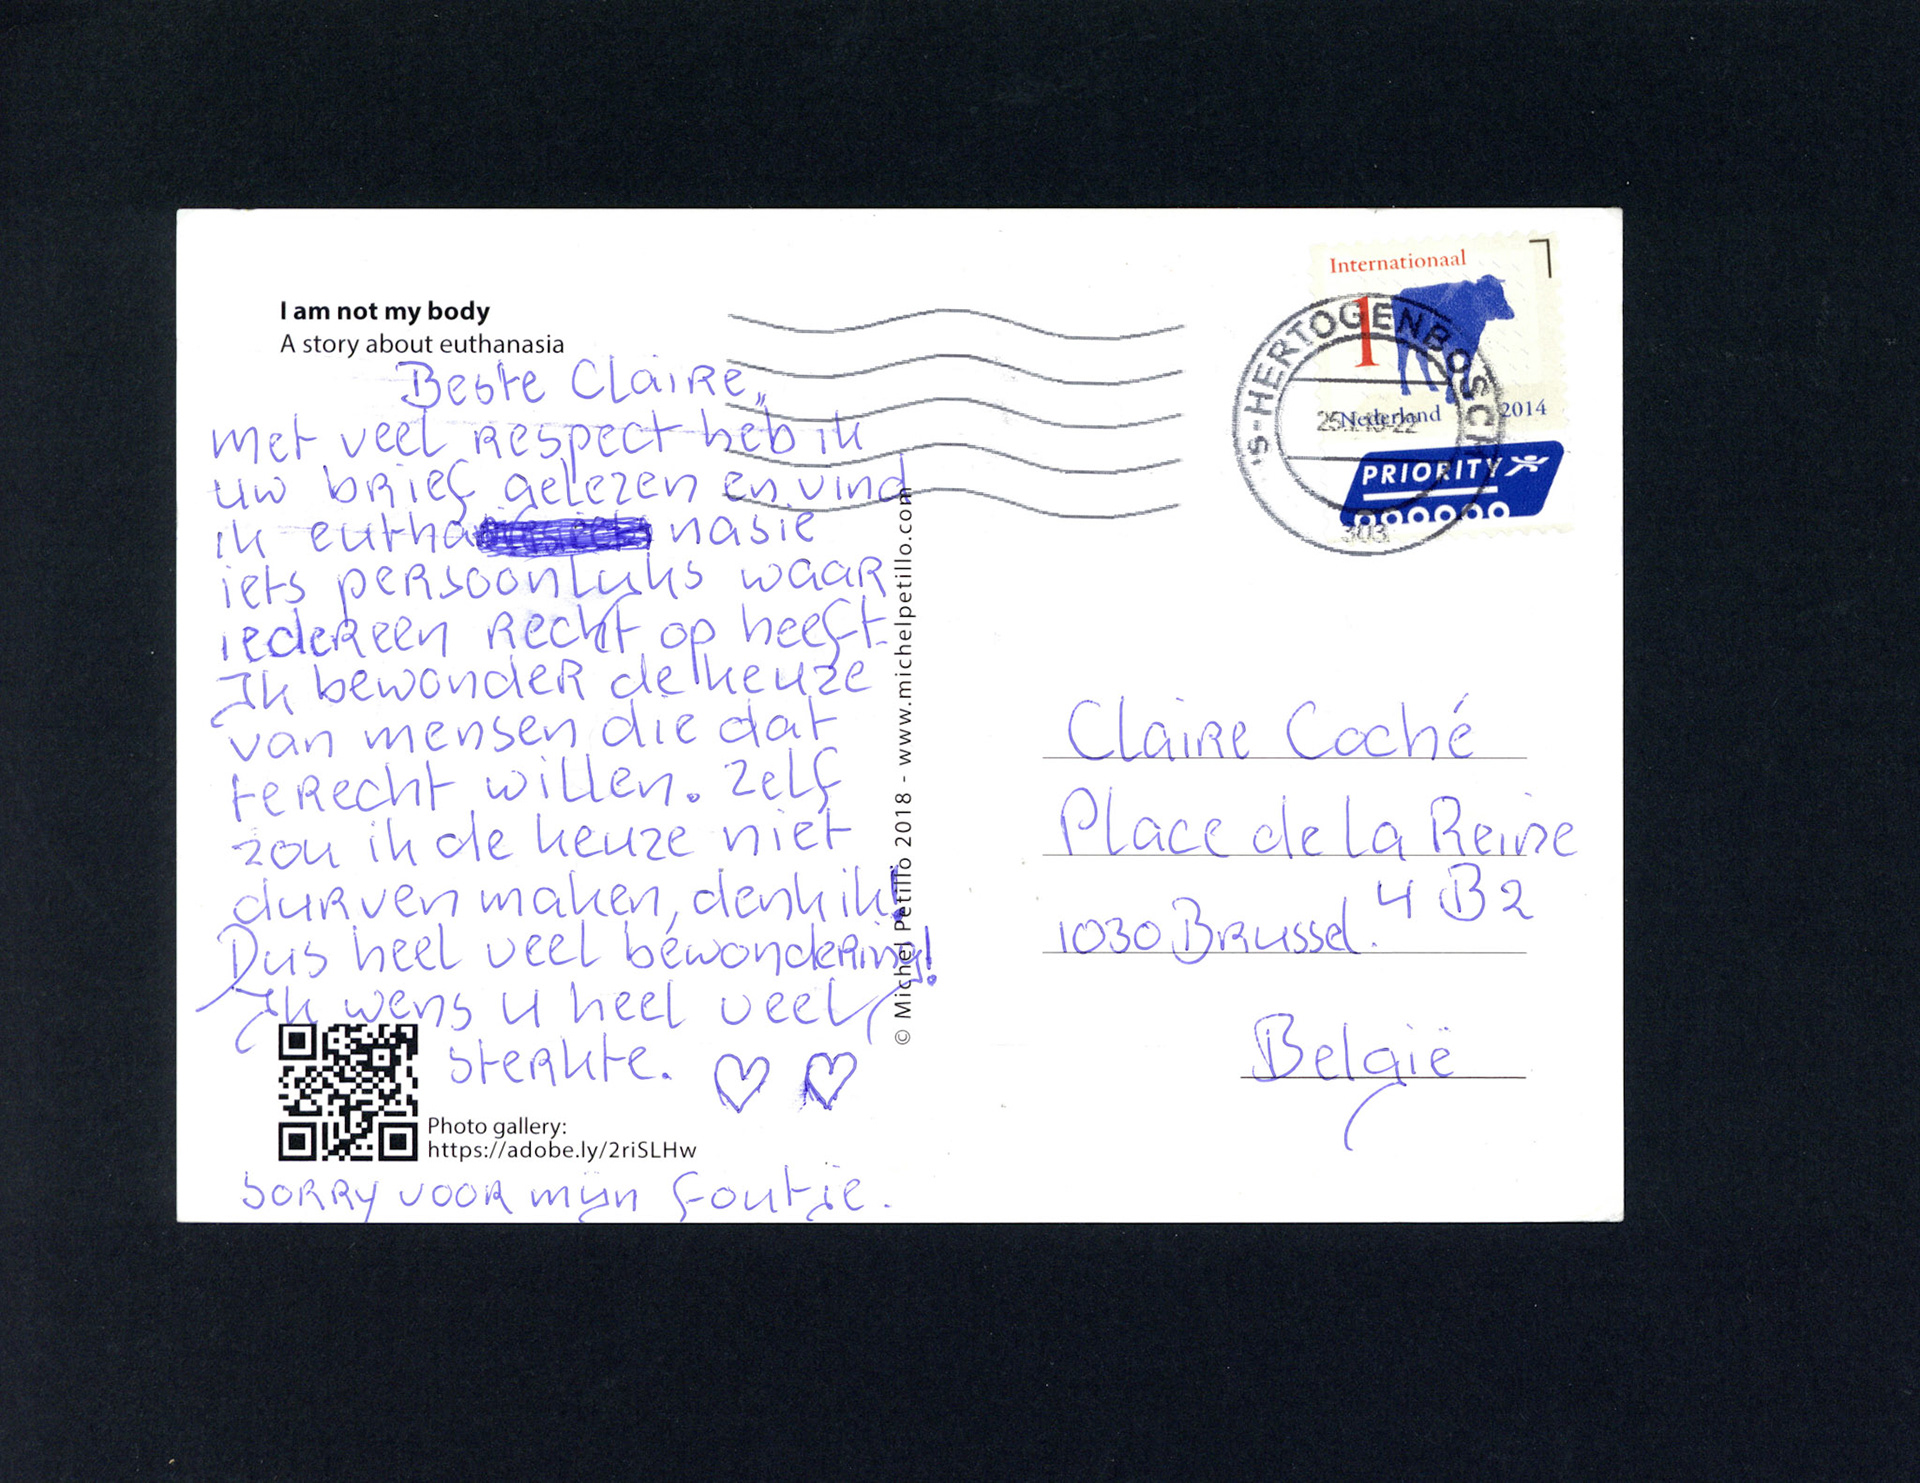 I am not my body
A story about euthanasia
Beste Claire,,
met veel respect heb ik
uw brief gelezen en vind
ik eutha nasie
iets persoonlijks waar
iedereen recht op heeft.
Ik bewonder de keuze
van mensen die dat
terecht willen. Zelf
zou ik de keuze niet
durven maken, denk ik!
Dus heel veel bewondering!
Ik wens u heel veel
sterkte. ♡ ♡
Photo gallery:
https://adobe.ly/2riSLHw
sorry voor mijn foutje.
© Michel Petillo 2018 - www.michelpetillo.com
Internationaal
1
Nederland 2014
PRIORITY
'S-HERTOGENBOSCH
303
Claire Coché
Place de la Reine
4 B2
1030 Brussel.
België